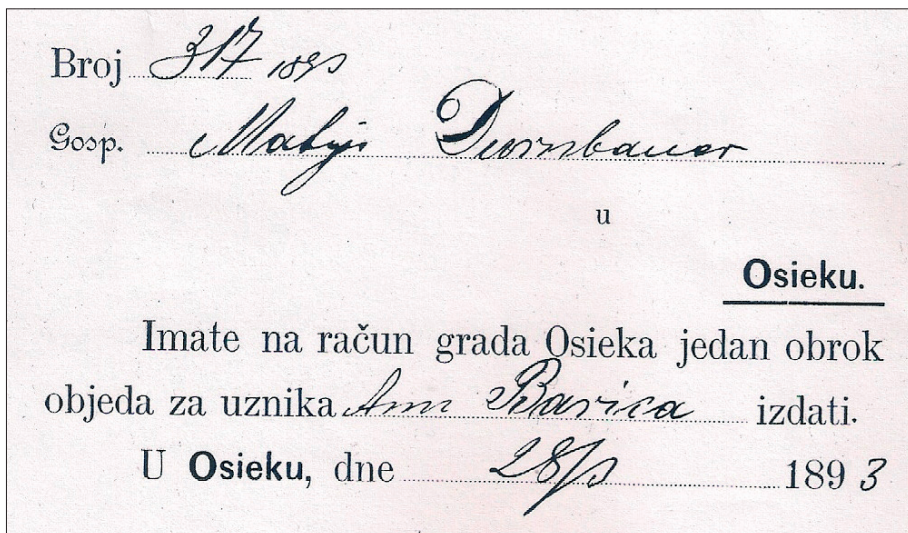 Broj 317 1893
Gosp. Matiji Durnbauer
u
Osieku.
Imate na račun grada Osieka jedan obrok
objeda za uznika Barica izdati.
U Osieku, dne 28/ 1893